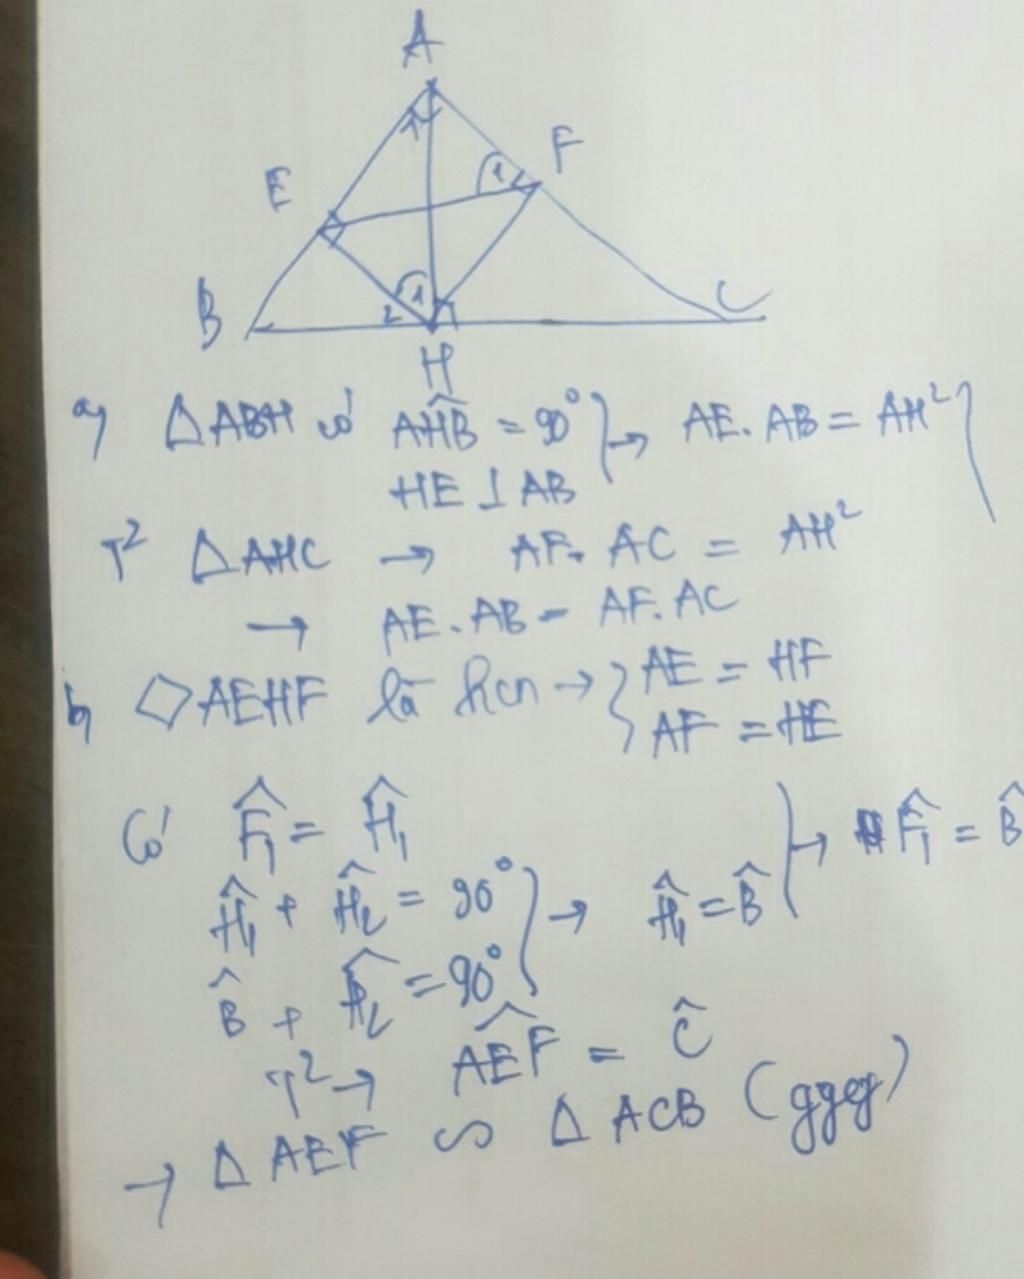 A
E
F
1
1
2
1
B
C
H
a) △ABH có AHB̂ = 90° } → AE. AB = AH² }
HE ⊥ AB
T² △AHC → AF. AC = AH²
→ AE. AB = AF. AC
b) ◇AEHF là hcn → { AE = HF
AF = HE
Có F̂₁ = Ĥ₁ } → F̂₁ = B̂
Ĥ₁ + Ĥ₂ = 90° } → Ĥ₁ = B̂
B̂ + Ĥ₂ = 90°
T² → AÊF = Ĉ
→ △AEF ∽ △ACB (ggg)